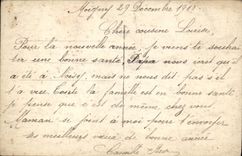 29 Decembre 1915
Chère cousine Louise
Pour la nouvelle année je viens te souhai
ter une bonne santé. Papa nous écrit qu'il
a été à mais ne nous dit pas s'il
t'a vue. Toute la famille est en bonne santé
je pense que c'est de même chez vous.
Maman se joint à moi pour t'envoyer
nos meilleurs vœux de bonne année.
Camille